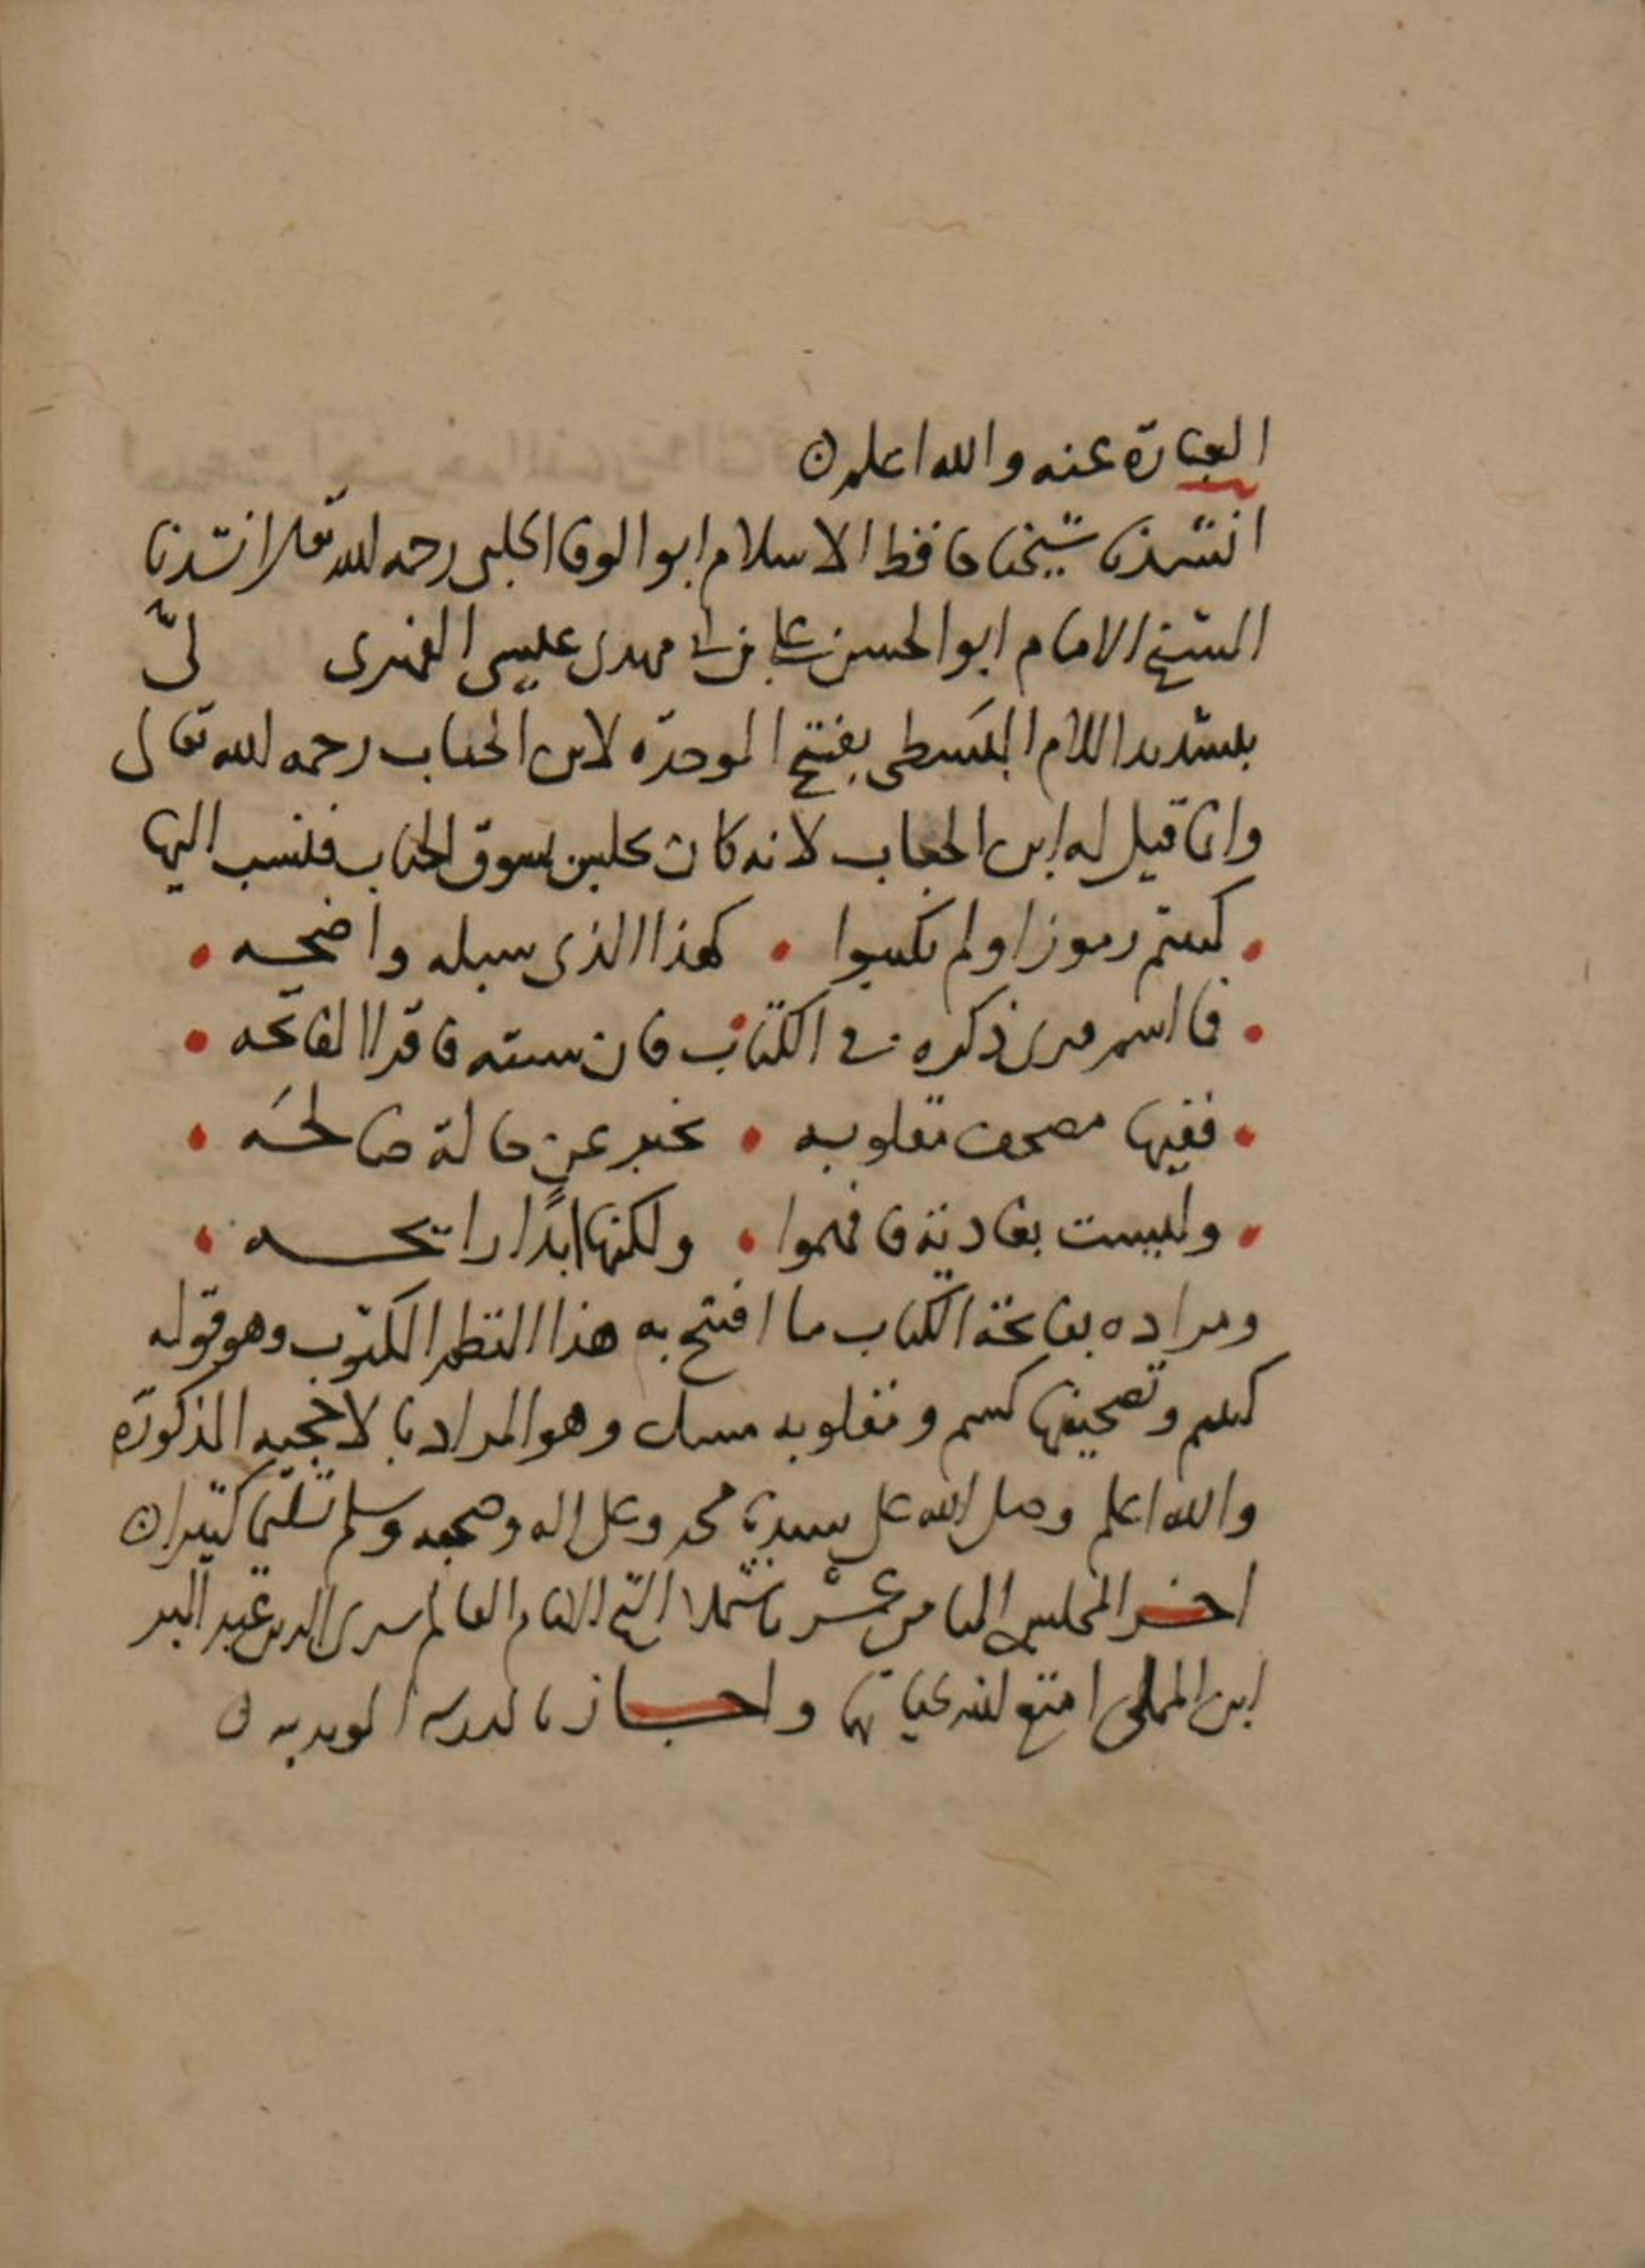 العبارة عنه والله اعلم
انشدنا شيخنا حافظ الاسلام ابو الوفا الحلبي رحمه الله تعالى انشدنا
الشيخ الامام ابو الحسن علي بن ابي مهدي عيسى الفهري لبّ
بتشديد اللام البَسطي بفتح الموحدة لابن الجباب رحمه الله تعالى
وانما قيل له ابن الجباب لانه كان يجلس بسوق الجباب فنسب اليها
كتبتم رموزا ولم تكتبوا • كهذا الذي سبله واضحه
فما اسم جرى ذكره في الكتاب فان شئته فاقرا الفاتحه
ففيها مصحف مقلوبه • تخبر عن حالة صالحَه
وليست بغادية فافهموا • ولكنها ابدًا رايحه
ومراده بفاتحة الكتاب ما افتتح به هذا النظم المكتوب وهو قوله
كتبتم وتصحيفها ومقلوبه وهو المراد بالاحجيه المذكورة
والله اعلم وصلى الله على سيدنا محمد وعلى اله وصحبه وسلم تسليما كثيرا
اخر المجلس عشر باستملا الشيخ الامام العالم سري الدين عبد البر
ابن امتع الله بحياتهما واجاز بالمدرسه المويديه